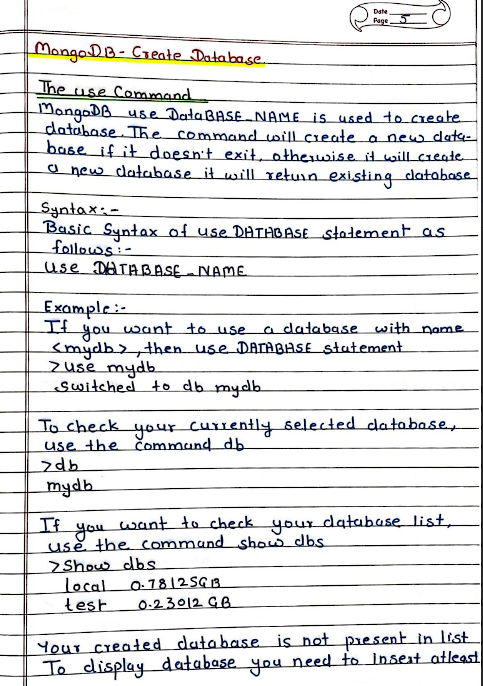 Date
Page 5
MongoDB - Create Database.
The use Command
MongoDB use DataBASE_NAME is used to create
database. The command will create a new data-
base if it doesn't exit, otherwise it will create
a new database it will return existing database
Syntax:-
Basic Syntax of use DATABASE statement as
follows:-
use DATABASE_NAME
Example:-
If you want to use a database with name
<mydb>, then use DATABASE statement
>use mydb
switched to db mydb
To check your currently selected database,
use the command db
>db
mydb
If you want to check your database list,
use the command show dbs
>Show dbs
local 0.78125GB
test 0.23012 GB
Your created database is not present in list
To display database you need to insert atleast